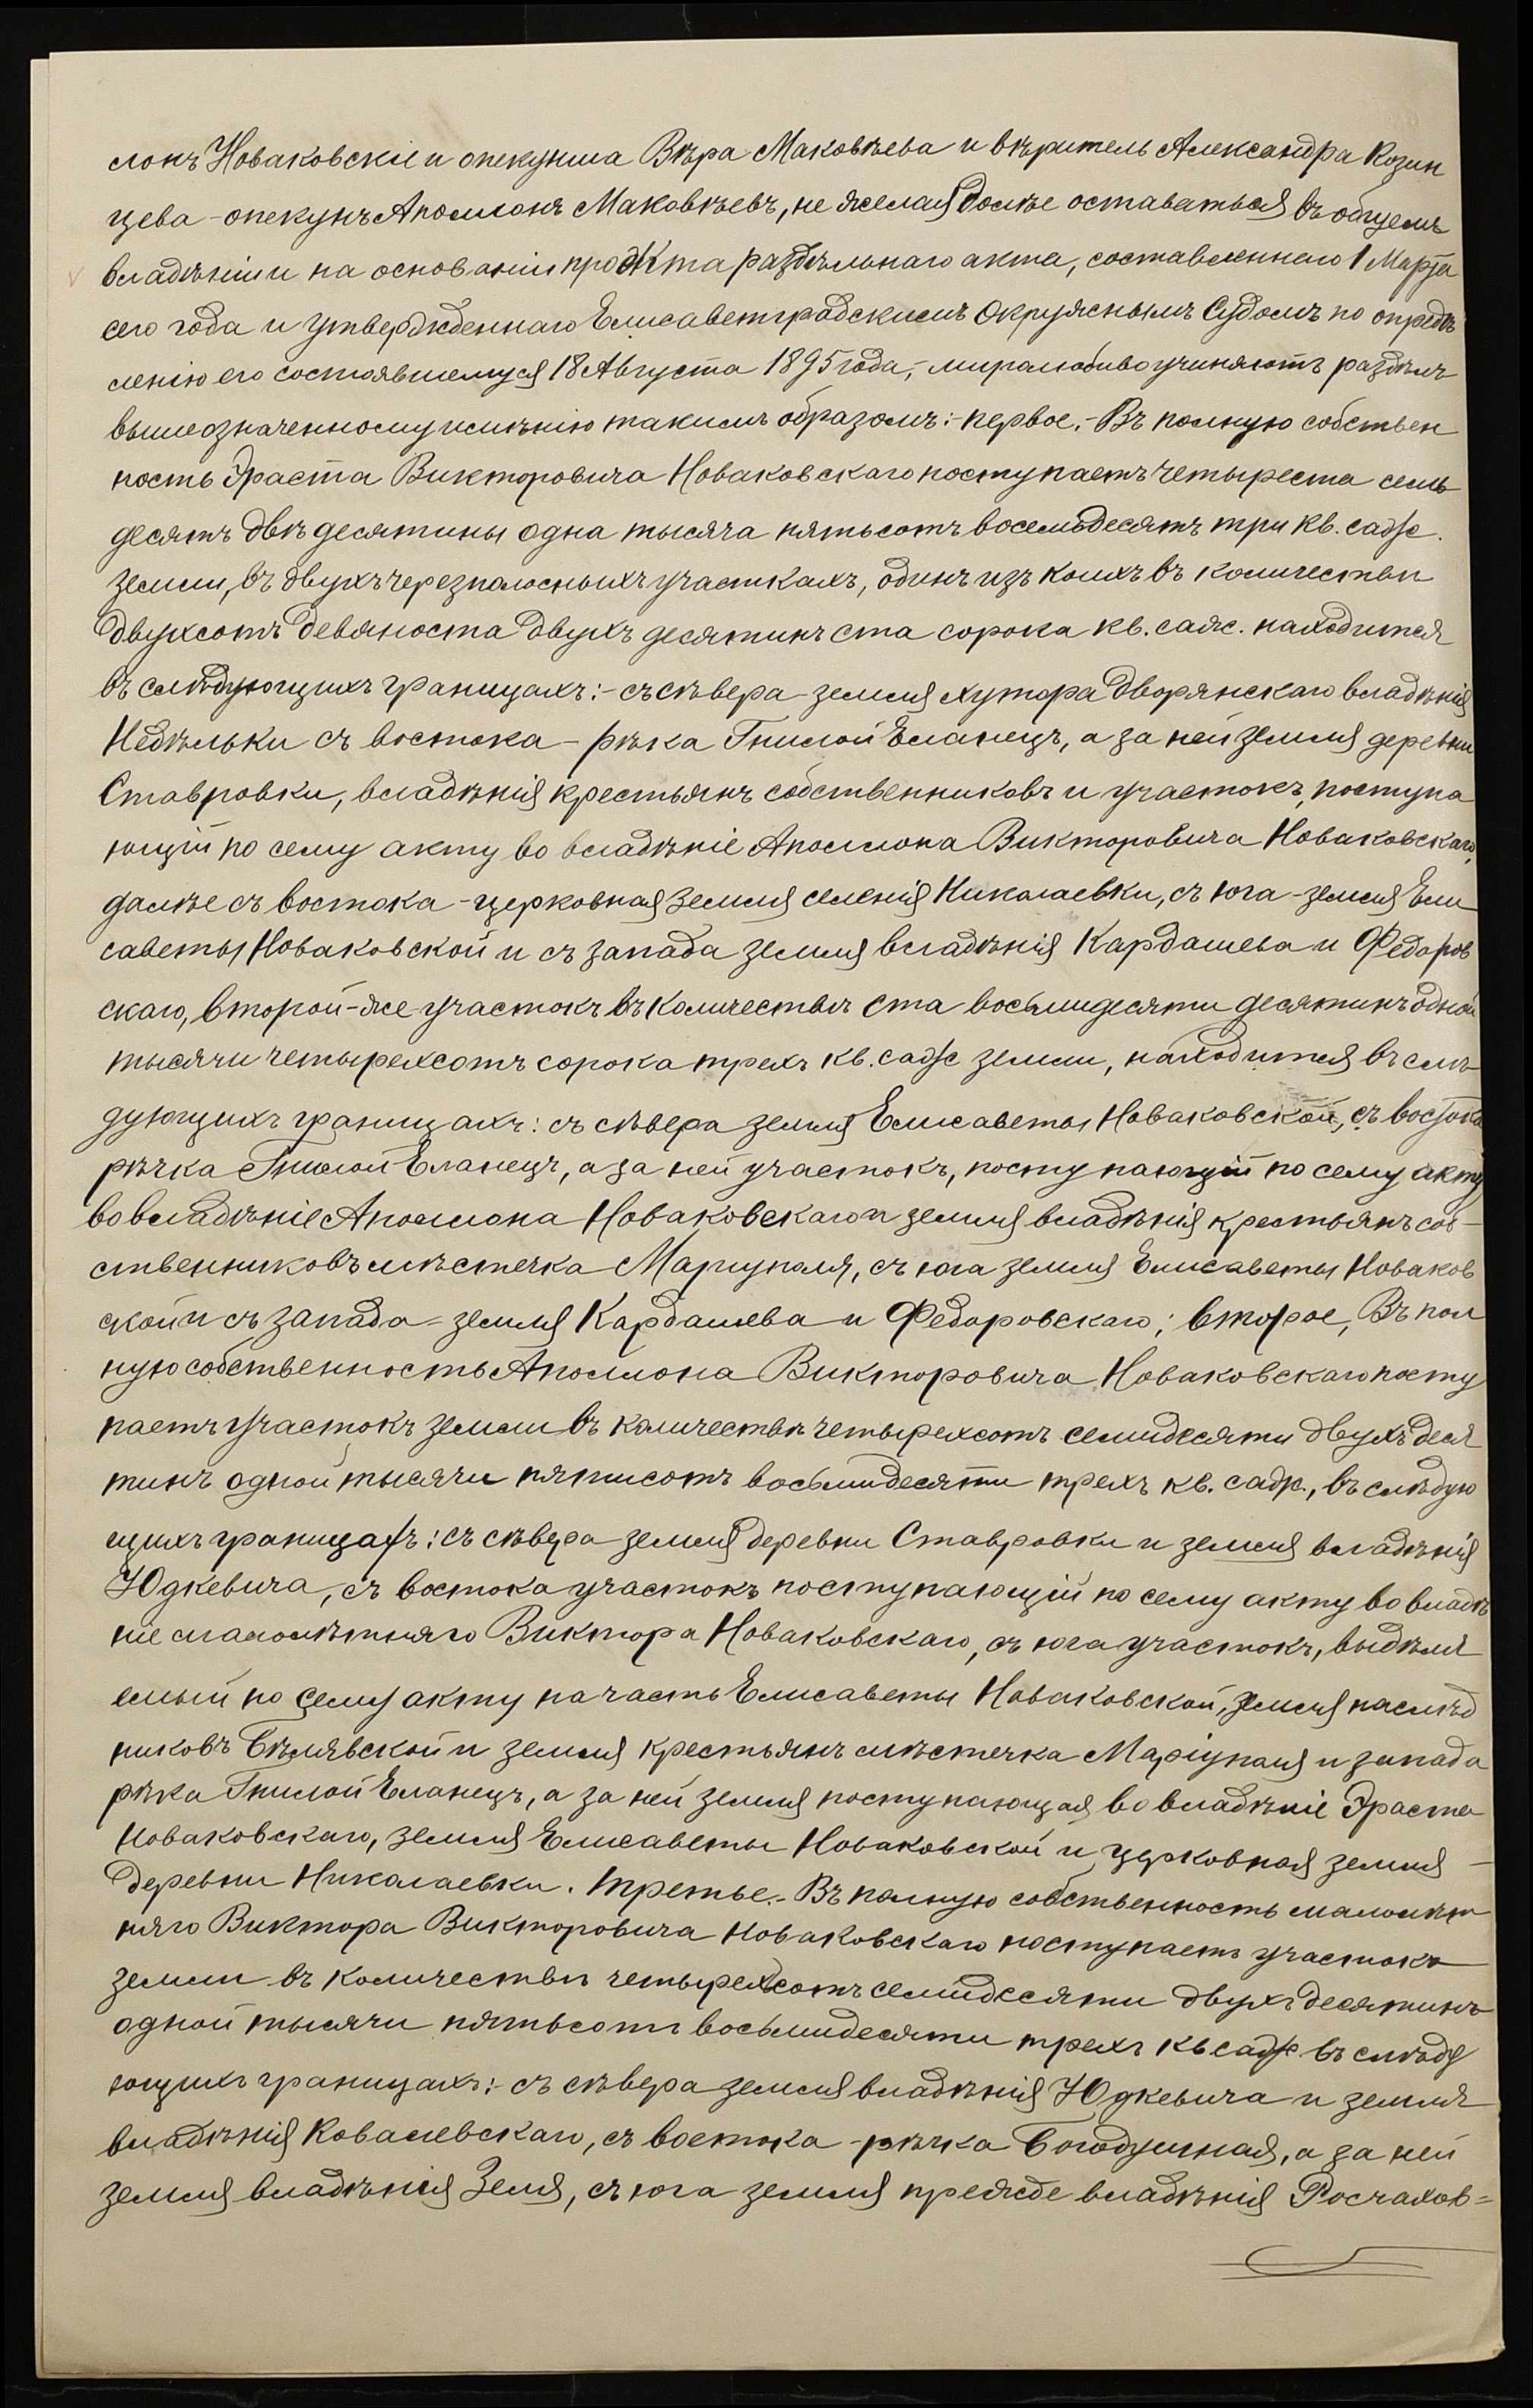 лонъ Новаковскіе и опекунша Вѣра Маковѣева и вѣритель Александра Козин
цева - опекунъ Аполлонъ Маковѣевъ, не желая болѣе оставаться въ общемъ
владѣніи и на основаніи проэкта раздѣльнаго акта, составленнаго 1 Марта
сего года и утвержденнаго Елисаветградскимъ Окружнымъ Судомъ по опредѣ
ленію его состоявшемуся 18 Августа 1895 года, - миролюбиво учиняютъ раздѣлъ
вышеозначенному имѣнію такимъ образомъ: - первое. - Въ полную собствен
ность Эраста Викторовича Новаковскаго поступаетъ четыреста семь
десятъ двѣ десятины одна тысяча пятьсотъ восемьдесятъ три кв. саж.
земли, въ двухъ черезполосныхъ участкахъ, одинъ изъ коихъ въ количествѣ
двухсотъ девяноста двухъ десятинъ ста сорока кв. саж. находится
въ слѣдующихъ границахъ: - съ сѣвера - земля хутора дворянскаго владѣнія
Недѣльки съ востока - рѣка Гнилой Еланецъ, а за ней земля деревни
Ставровки, владѣнія крестьянъ собственниковъ и участокъ, поступа
ющій по сему акту во владѣніе Аполлона Викторовича Новаковскаго,
далѣе съ востока - церковная земля селенія Николаевки, съ юга - земля Ели
саветы Новаковской и съ запада земля владѣнія Кардашева и Федоров
скаго, второй-же участокъ въ количествѣ ста восьмидесяти десятинъ одной
тысячи четырехсотъ сорока трехъ кв. саж земли, находится въ слѣ
дующихъ границахъ: съ сѣвера земля Елисаветы Новаковской, съ востока
рѣчка Гнилой Еланецъ, а за ней участокъ, поступающій по сему акту
во владѣніе Аполлона Новаковскаго и земля владѣнія крестьянъ соб-
ственниковъ мѣстечка Маріуполя, съ юга земля Елисаветы Новаков
ской и съ запада - земля Кардашева и Федоровскаго; второе, Въ пол
ную собственность Аполлона Викторовича Новаковскаго посту
паетъ участокъ земли въ количествѣ четырехсотъ семидесяти двухъ деся
тинъ одной тысячи пятисотъ восьмидесяти трехъ кв. саж., въ слѣдую
щихъ границахъ: съ сѣвера - земля деревни Ставровки и земля владѣнія
Юдкевича, съ востока участокъ поступающій по сему акту во владѣ
ніе малолѣтняго Виктора Новаковскаго, съ юга участокъ, выдѣля
емый по сему акту на часть Елисаветы Новаковской, земля наслѣд
никовъ Бѣлявской и земля крестьянъ мѣстечка Маріуполя и запада
рѣка Гнилой Еланецъ, а за ней земля поступающая во владѣніе Эраста
Новаковскаго, земля Елисаветы Новаковской и церковная земля -
деревни Николаевки. третье. - Въ полную собственность малолѣт
няго Виктора Викторовича Новаковскаго поступаетъ участокъ
земли въ количествѣ четырехсотъ семидесяти двухъ десятинъ
одной тысячи пятьсотъ восьмидесяти трехъ кв саж въ слѣду
ющихъ границахъ: - съ сѣвера земля владѣнія Юдкевича и земля
владѣнія Ковалевскаго, съ востока - рѣчка Богодушная, а за ней
земля владѣнія Зеля, съ юга земля прежде владѣнія Росчахов=